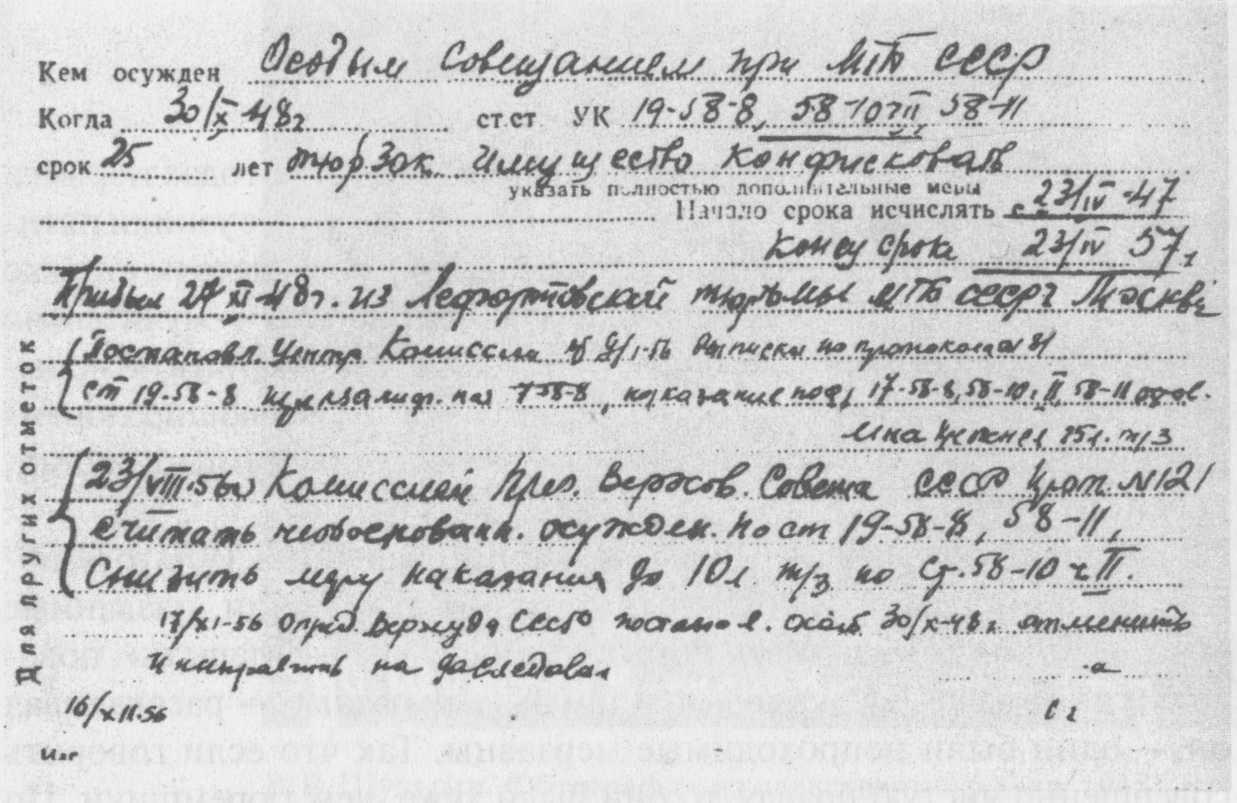 Кем осужден Особым Совещанием при МГБ СССР
Когда 30/X-48г ст.ст УК 19-58-8, 58-10 ч II, 58-11
срок 25 лет тюрзак. Имущество конфисковать
указать полностью дополнительные меры
Начало срока исчислять с 23/IV-47
Конец срока 23/IV 57г
Прибыл 27 XI-48г. из Лефортовской тюрьмы МГБ СССР г Москвы
Постановл. Центр Комиссии от 9/I-56 Выписки по протокола
ст 19-58-8 на 17-58-8, наказание по 17-58-8, 58-10 ч II, 58-11
25л. т/з
23/VIII-56г Комиссией През. Верхов. Совета СССР Прот. №121
считать необоснованн. осужден. по ст 19-58-8, 58-11,
Снизить меру наказания до 10л т/з по ст. 58-10 ч II.
17/XI-56 Опред. Верхсуда СССР постановл. 30/X-48г отменить
и направить на доследован
16/XII-56
Для других отметок